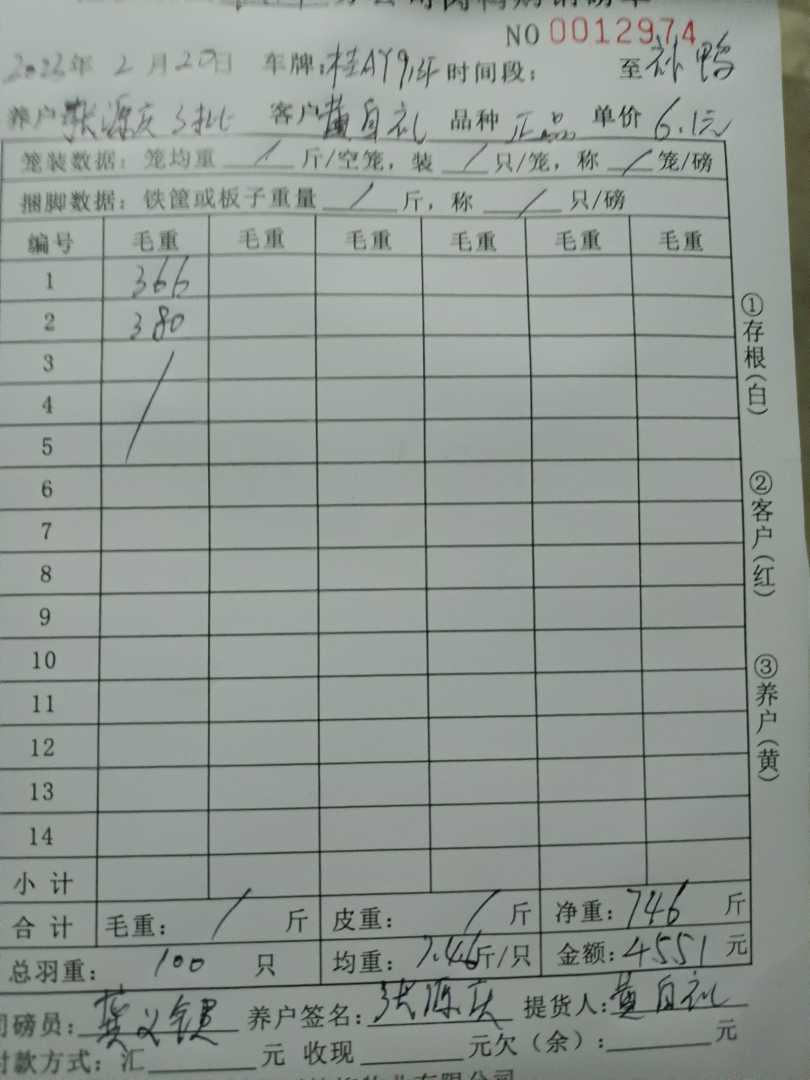 分公司肉鸭购销磅单
NO 0012974
2023年 2月20日 车牌: 桂AY915 时间段: 至 补鸭
养户 张源庆 3批 客户 黄自礼 品种 正品 单价 6.1元
笼装数据: 笼均重 / 斤/空笼, 装 / 只/笼, 称 / 笼/磅
捆脚数据: 铁筐或板子重量 / 斤, 称 / 只/磅
编号 毛重 毛重 毛重 毛重 毛重 毛重
1 366
2 380
3 /
4
5
6
7
8
9
10
11
12
13
14
小 计
合 计 毛重: / 斤 皮重: / 斤 净重: 746 斤
总羽重: 100 只 均重: 7.46斤/只 金额: 4551 元
司磅员: 龚 养户签名: 张源庆 提货人: 黄自礼
付款方式: 汇 元 收现 元欠(余): 元
①存根(白)
②客户(红)
③养户(黄)